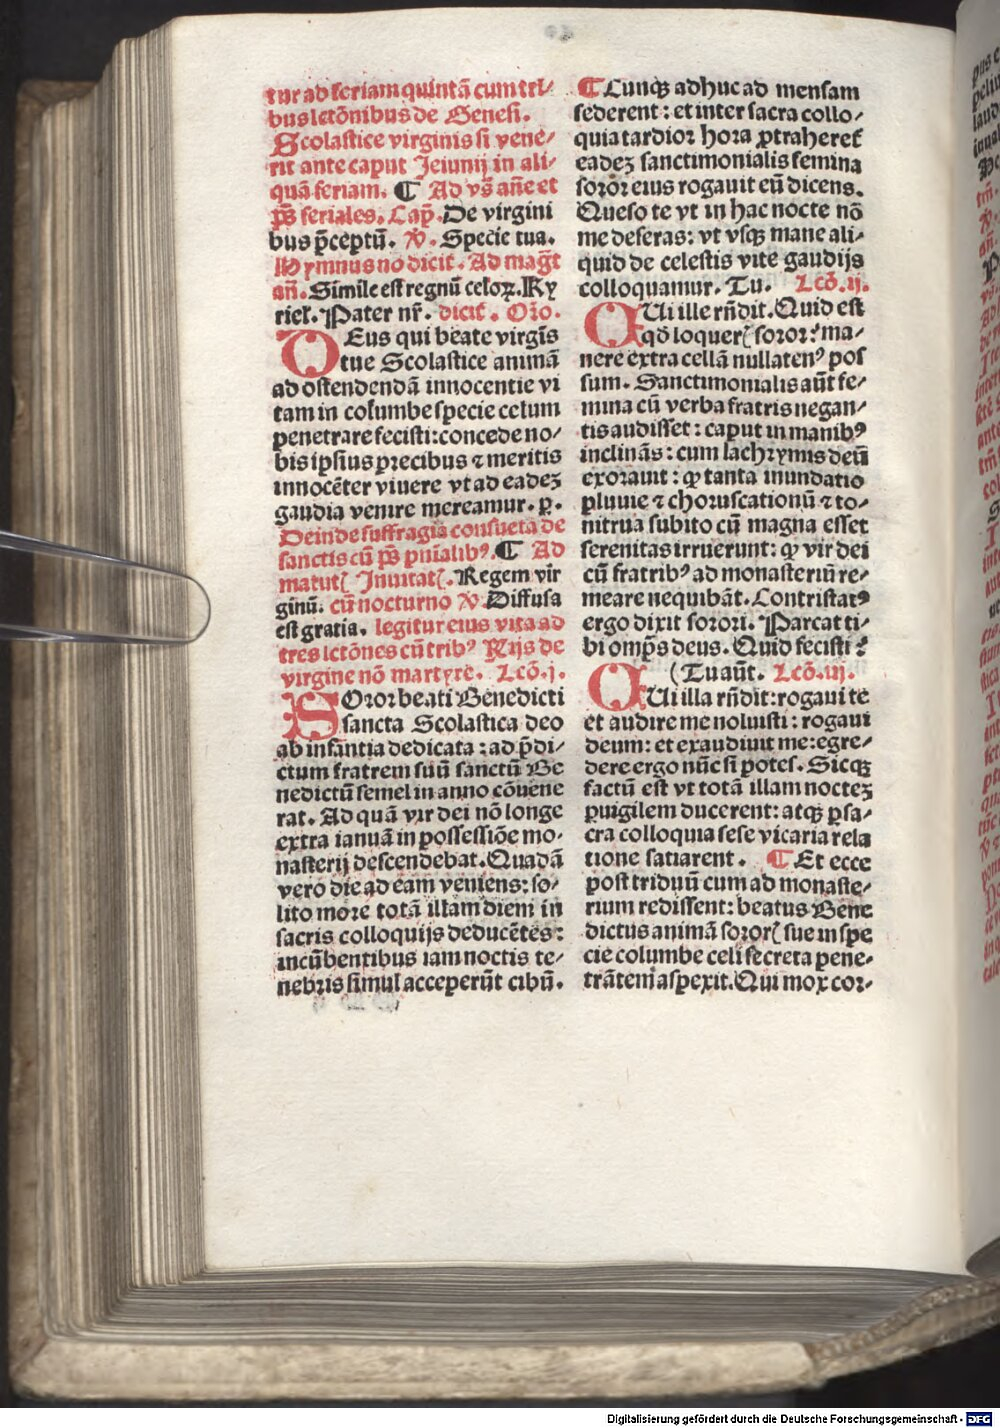 tur ad feriam quintā cum tri/
bus lctōnibus de Genesi.
Scolastice virginis si vene/
rit ante caput Jeiunij in ali/
quā feriam. ¶ Ad vs̄ an̄e et
ps̄ feriales. Cap̄. De virgini
bus p̄ceptū. ℣. Specie tua.
Hymnus no dicit̄. Ad maḡt
an̄. Simile est regnū celoꝝ. Ky
riel. Pater nr̄. dicit̄. Or̄o.
DEus qui beate virgīs
tue Scolastice animā
ad ostendendā innocentie vi
tam in columbe specie celum
penetrare fecisti: concede no/
bis ipsius precibus ⁊ meritis
innocēter viuere vt ad eadeꝫ
gaudia venire mereamur. p̄.
Deinde suffragia consueta de
sanctis cū ps̄ pn̄ialibꝰ. ¶ Ad
matut̄ Inuitat̄. Regem vir
ginū. cū nocturno ℣. Diffusa
est gratia. legitur eius vita ad
tres lctōnes cū tribꝰ R̄ijs de
virgine nō martyre. Lcō.j.
SOror beati Benedicti
sancta Scolastica deo
ab infantia dedicata: ad p̄di/
ctum fratrem suū sanctū Be
nedictū semel in anno cōuene
rat. Ad quā vir dei nō longe
extra ianuā in possessiōe mo/
nasterij descendebat. Quadā
vero die ad eam veniens: so/
lito more totā illam diem in
sacris colloquijs deducētes:
incūbentibus iam noctis te/
nebris simul acceperūt cibū.
¶ Cunqꝫ adhuc ad mensam
sederent: et inter sacra collo/
quia tardior hora ꝓtraheret̄
eadeꝫ sanctimonialis femina
soror eius rogauit eū dicens.
Queso te vt in hac nocte nō
me deseras: vt vsqꝫ mane ali/
quid de celestis vite gaudijs
colloquamur. Tu. Lcō.ij.
QUi ille rn̄dit. Quid est
qd̄ loquer̄ soror? ma/
nere extra cellā nullatenꝰ pos
sum. Sanctimonialis aūt fe/
mina cū verba fratris negan/
tis audisset: caput in manibꝰ
inclinās: cum lachrymis deū
exorauit: ꝙ tanta inundatio
pluuie ⁊ choruscationū ⁊ to/
nitrua subito cū magna esset
serenitas irruerunt: ꝙ vir dei
cū fratribꝰ ad monasteriū re/
meare nequibāt. Contristatꝰ
ergo dixit sorori. Parcat ti/
bi omp̄s deus. Quid fecisti?
(Tu aūt. Lcō.iij.
QUi illa rn̄dit: rogaui te
et audire me noluisti: rogaui
deum: et exaudiuit me: egre/
dere ergo nūc si potes. Sicqꝫ
factū est vt totā illam nocteꝫ
ꝑuigilem ducerent: atqꝫ ꝑ sa/
cra colloquia sese vicaria rela
tione satiarent. ¶ Et ecce
post triduū cum ad monaste/
rium redissent: beatus Bene
dictus animā soror̄ sue in spe
cie columbe celi secreta pene/
trātem aspexit. Qui mox cor/
Digitalisierung gefördert durch die Deutsche Forschungsgemeinschaft - DFG